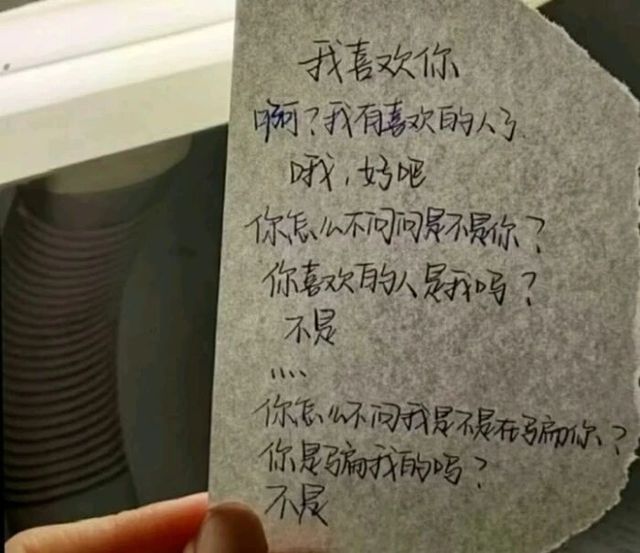 我喜欢你
啊？我有喜欢的人了
哦，好吧
你怎么不问问是不是你？
你喜欢的人是我吗？
不是
....
你怎么不问我是不是在骗你？
你是骗我的吗？
不是